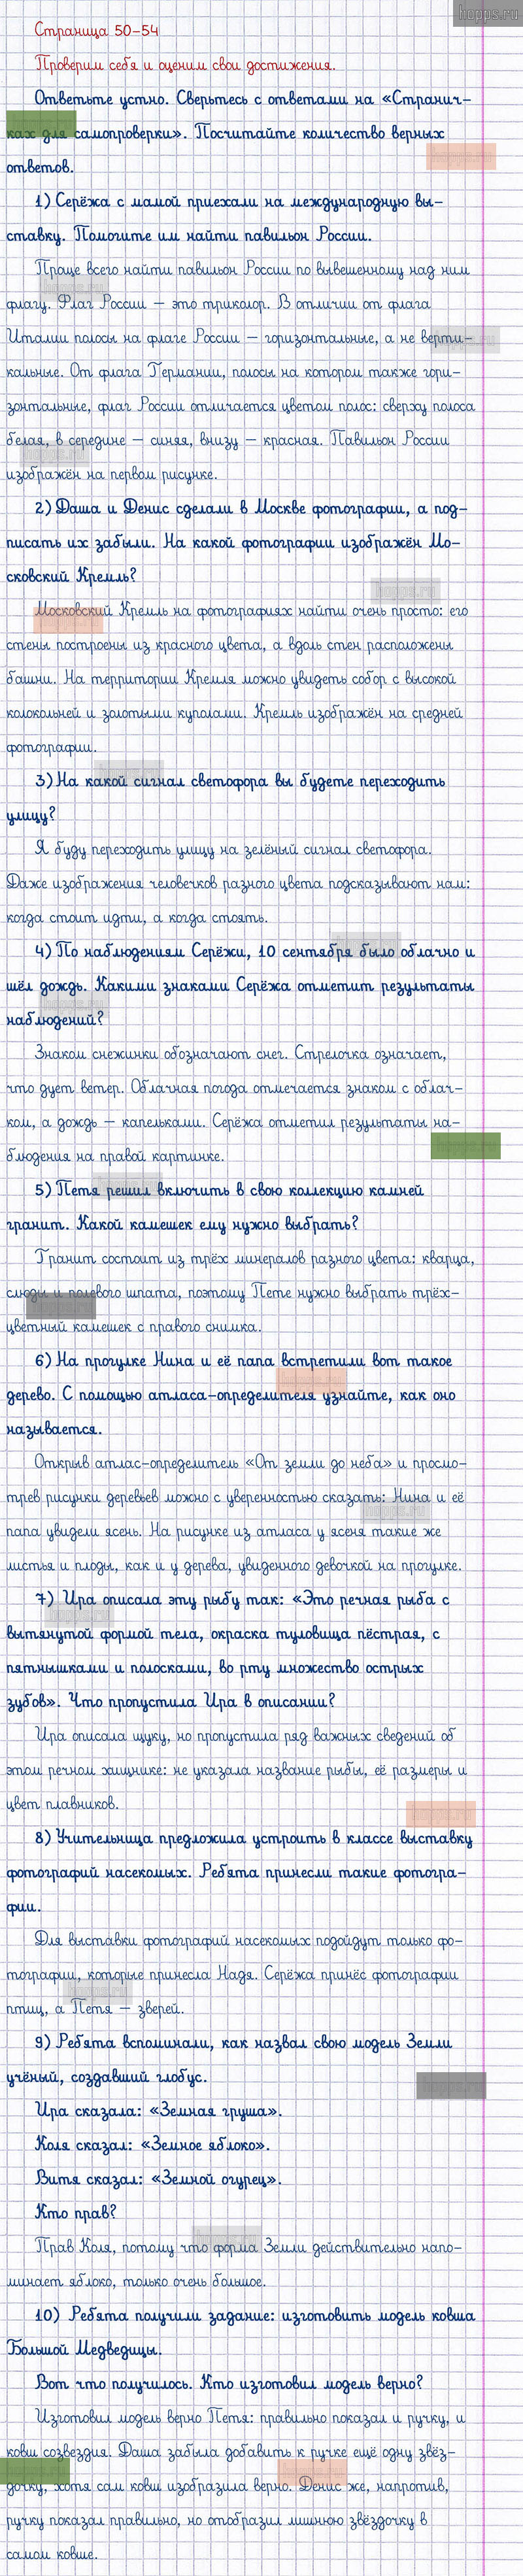 hopps.ru
Страница 50-54
Проверим себя и оценим свои достижения.
Ответьте устно. Сверьтесь с ответами на «Странич-
ках для самопроверки». Посчитайте количество верных
ответов.
1) Серёжа с мамой приехали на международную вы-
ставку. Помогите им найти павильон России.
Проще всего найти павильон России по вывешенному над ним
флагу. Флаг России – это триколор. В отличии от флага
Италии полосы на флаге России – горизонтальные, а не верти-
кальные. От флага Германии, полосы на котором также гори-
зонтальные, флаг России отличается цветом полос: сверху полоса
белая, в середине – синяя, внизу – красная. Павильон России
изображён на первом рисунке.
2) Даша и Денис сделали в Москве фотографии, а под-
писать их забыли. На какой фотографии изображён Мо-
сковский Кремль?
Московский Кремль на фотографиях найти очень просто: его
стены построены из красного цвета, а вдоль стен расположены
башни. На территории Кремля можно увидеть собор с высокой
колокольней и золотыми куполами. Кремль изображён на средней
фотографии.
3) На какой сигнал светофора вы будете переходить
улицу?
Я буду переходить улицу на зелёный сигнал светофора.
Даже изображения человечков разного цвета подсказывают нам:
когда стоит идти, а когда стоять.
4) По наблюдениям Серёжи, 10 сентября было облачно и
шёл дождь. Какими знаками Серёжа отметит результаты
наблюдений?
Знаком снежинки обозначают снег. Стрелочка означает,
что дует ветер. Облачная погода отмечается знаком с облач-
ком, а дождь – капельками. Серёжа отметил результаты на-
блюдения на правой картинке.
5) Петя решил включить в свою коллекцию камней
гранит. Какой камешек ему нужно выбрать?
Гранит состоит из трёх минералов разного цвета: кварца,
слюды и полевого шпата, поэтому Пете нужно выбрать трёх-
цветный камешек с правого снимка.
6) На прогулке Нина и её папа встретили вот такое
дерево. С помощью атласа-определителя узнайте, как оно
называется.
Открыв атлас-определитель «От земли до неба» и просмо-
трев рисунки деревьев можно с уверенностью сказать: Нина и её
папа увидели ясень. На рисунке из атласа у ясеня такие же
листья и плоды, как и у дерева, увиденного девочкой на прогулке.
7) Ира описала эту рыбу так: «Это речная рыба с
вытянутой формой тела, окраска туловища пёстрая, с
пятнышками и полосками, во рту множество острых
зубов». Что пропустила Ира в описании?
Ира описала щуку, но пропустила ряд важных сведений об
этом речном хищнике: не указала название рыбы, её размеры и
цвет плавников.
8) Учительница предложила устроить в классе выставку
фотографий насекомых. Ребята принесли такие фотогра-
фии.
Для выставки фотографий насекомых подойдут только фо-
тографии, которые принесла Надя. Серёжа принёс фотографии
птиц, а Петя – зверей.
9) Ребята вспоминали, как назвал свою модель Земли
учёный, создавший глобус.
Ира сказала: «Земная груша».
Коля сказал: «Земное яблоко».
Витя сказал: «Земной огурец».
Кто прав?
Прав Коля, потому что форма Земли действительно напо-
минает яблоко, только очень большое.
10) Ребята получили задание: изготовить модель ковша
Большой Медведицы.
Вот что получилось. Кто изготовил модель верно?
Изготовил модель верно Петя: правильно показал и ручку, и
ковш созвездия. Даша забыла добавить к ручке ещё одну звёз-
дочку, хотя сам ковш изобразила верно. Денис же, напротив,
ручку показал правильно, но отобразил лишнюю звёздочку в
самом ковше.